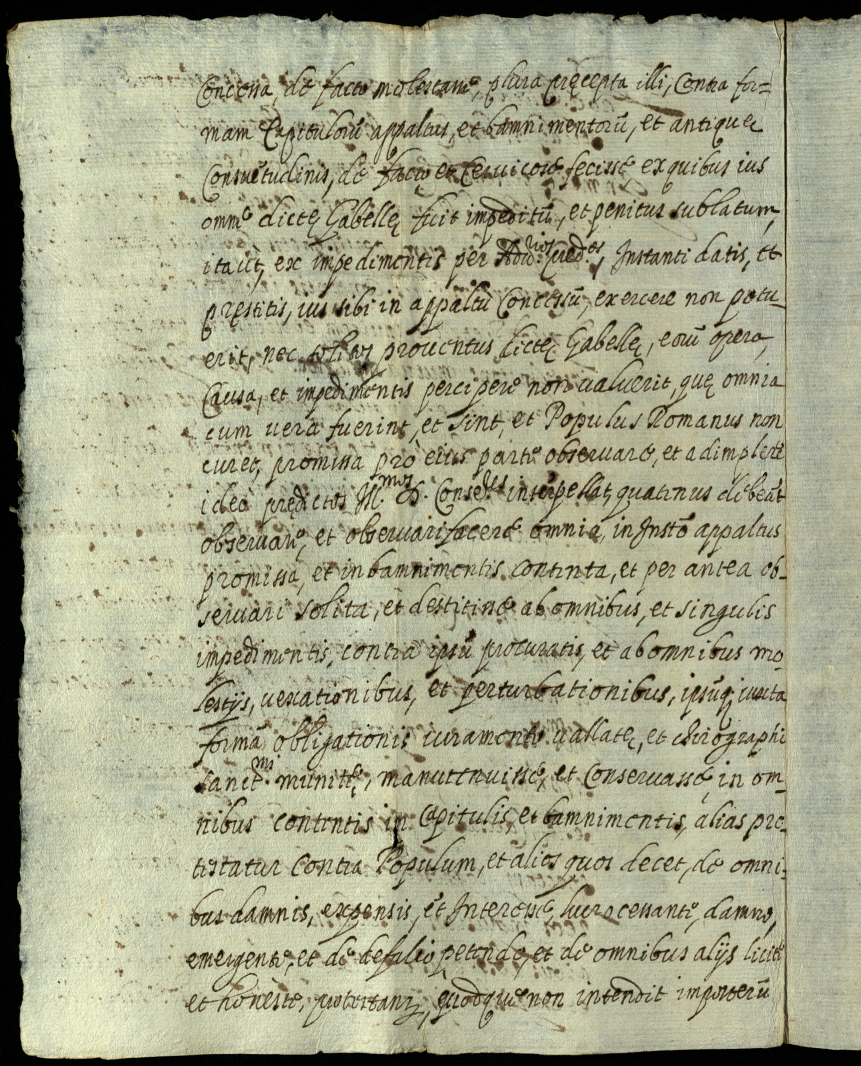 de facto molestare, plura pręcepta illi, Contra for=
mam Capitulorũ appaltus, et bamnimentorũ, et antiquę
Consuetudinis, de facto et fecisse ex quibus ius
omne dictę Gabellę fuit impeditũ, et penitus sublatum,
ita ut, ex impedimentis per Instanti datis, et
pręstitis, ius sibi in appaltu Concessũ, exercere non potu-
erit, nec solitos prouentus dictę Gabellę, eorũ opera,
Causa, et impedimentis percipere non ualuerit, quę omnia
cum uera fuerint, et sint, et Populus Romanus non
curet, promissa pro eius parte obseruare, et adimplere
ideo prędictos Ill.mos D. Conse.res interpellat, quatinus debeãt
obseruare, et obseruari facere omnia, in Insto appaltus
promissa, et in bamnimentis contenta, et per antea ob-
seruari solita, et destitine ab omnibus, et singulis
impedimentis, contra ipsũ procuratis, et ab omnibus mo
lestijs, uexationibus, et perturbationibus, ipsũq, iuxta
formã obligationis iuramento uallatę, et chirographi
sanct.mi munitę, manutenuisse, et Conseruasse, in om-
nibus contentis in Capitulis, et bamnimentis, alias pro-
testatur contra Populum, et alios quos decet, de omni-
bus damnis, expensis, et Interesse, lucro cessante, damno,
emergente, et de defalco petendo, et de omnibus alijs licite
et honeste, quodque non intendit